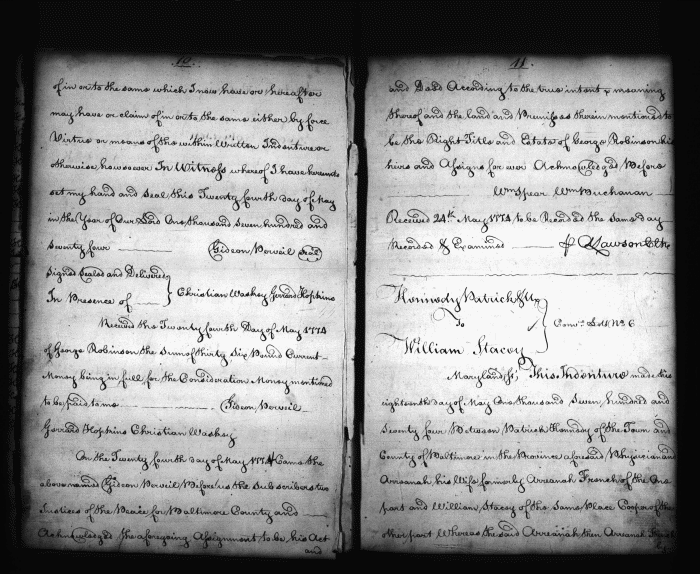 10.
of in or to the same which I now have or hereafter
may have or claim of in or to the same either by force
Virtue or means of the within Written Indenture or
otherwise howsoever In Witness whereof I have hereunto
set my hand and Seal this Twenty fourth day of May
in the Year of Our Lord One thousand Seven hundred and
Seventy four Gideon Perveil Seal
Signed Sealed and Delivered
In Presence of } Christian Waskey Gerrard Hopkins
Received the Twenty fourth Day of May 1774
of George Robinson the Sum of thirty Six Pound Current
Money being in full for the Consideration Money mentioned
to be paid to me Gideon Perveil
Gerrard Hopkins Christian Waskey
On the Twenty fourth day of May 1774 Came the
above named Gideon Perveil Before us the Subscribers two
Justices of the Peace for Baltimore County and
Acknowledged the aforegoing Assignment to be his Act
and
11.
and Deed According to the true intent & meaning
thereof and the land and Premises therein mentioned to
be the Right Title and Estate of George Robinson his
heirs and Assigns for ever Acknowledged Before
Wm Spear Wm Buchanan
Received 24th May 1774 to be Recorded the Same day
Recorded & Examined Lawson Clk
Kennedy Patrick & Ux
To
William Stacey
} Conv. No 6
Maryland Ss. This Indenture made the
eighteenth day of May One thousand Seven hundred and
Seventy four Between Patrick Kennedy of the Town and
County of Baltimore in the Province aforesaid Physician and
Arreanah his Wife formerly Arreanah French of the One
part and William Stacey of the Same Place Cooper of the
other part Whereas the said Arreanah then Arreanah French